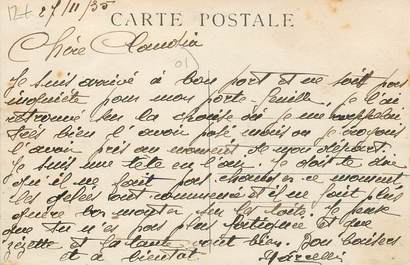 27/11/35
CARTE POSTALE
Chère Claudia
Je suis arrivé à bon port et ne soit pas
inquiète pour mon porte-feuille, je l'ai
retrouvé sur la chaise où je me rappelai
très bien l'avoir posé mais je croyais
l'avoir pris au moment de mon départ.
Je suis une tête en l'air. Je doit te dire
qu'il ne fait pas chaud en ce moment
les gelées sont commencé et il ne fait plus
guère bon monter sur les toits. Je pense
que tu n'es pas plus fatiguée et que
zézette et la tante vont bien. Bon baisers
et à bientôt Marcelli